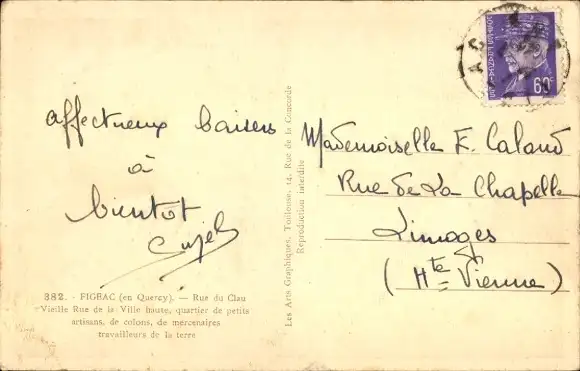 affectueux baisers
à
bientot
382. - FIGEAC (en Quercy). — Rue du Clau
Vieille Rue de la Ville haute, quartier de petits
artisans, de colons, de mercenaires
travailleurs de la terre
Les Arts Graphiques, Toulouse, 14, Rue de la Concorde
Reproduction interdite
Mademoiselle E. Caland
Rue de La Chapelle
Limoges
(Hte Vienne)
60c